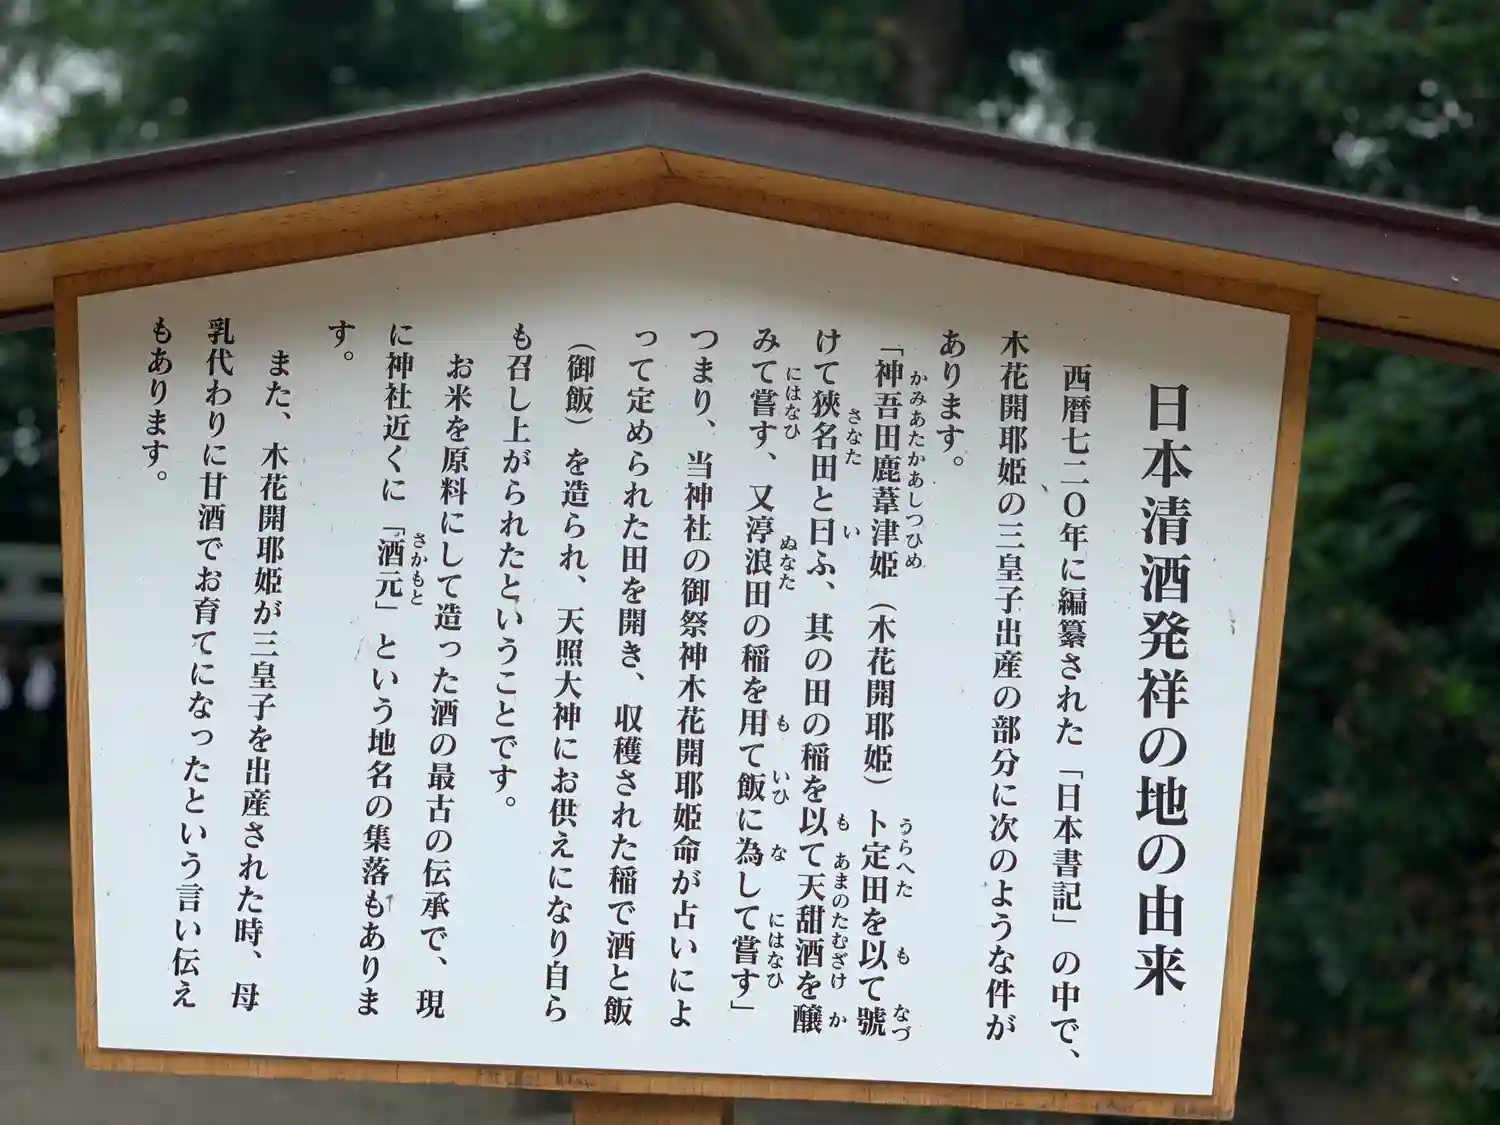 日本清酒発祥の地の由来
西暦七二〇年に編纂された「日本書記」の中で、
木花開耶姫の三皇子出産の部分に次のような件が
あります。
「神吾田鹿葦津姫（木花開耶姫）卜定田を以て號
かみあたかあしつひめ うらへた も なづ
けて狹名田と曰ふ、其の田の稲を以て天甜酒を醸
さなた い も あまのたむざけ か
みて嘗す、又渟浪田の稲を用て飯に為して嘗す」
にはなひ ぬなた も いひ な にはなひ
つまり、当神社の御祭神木花開耶姫命が占いによ
って定められた田を開き、収穫された稲で酒と飯
（御飯）を造られ、天照大神にお供えになり自ら
も召し上がられたということです。
お米を原料にして造った酒の最古の伝承で、現
に神社近くに「酒元」という地名の集落もありま
さかもと
す。
また、木花開耶姫が三皇子を出産された時、母
乳代わりに甘酒でお育てになったという言い伝え
もあります。